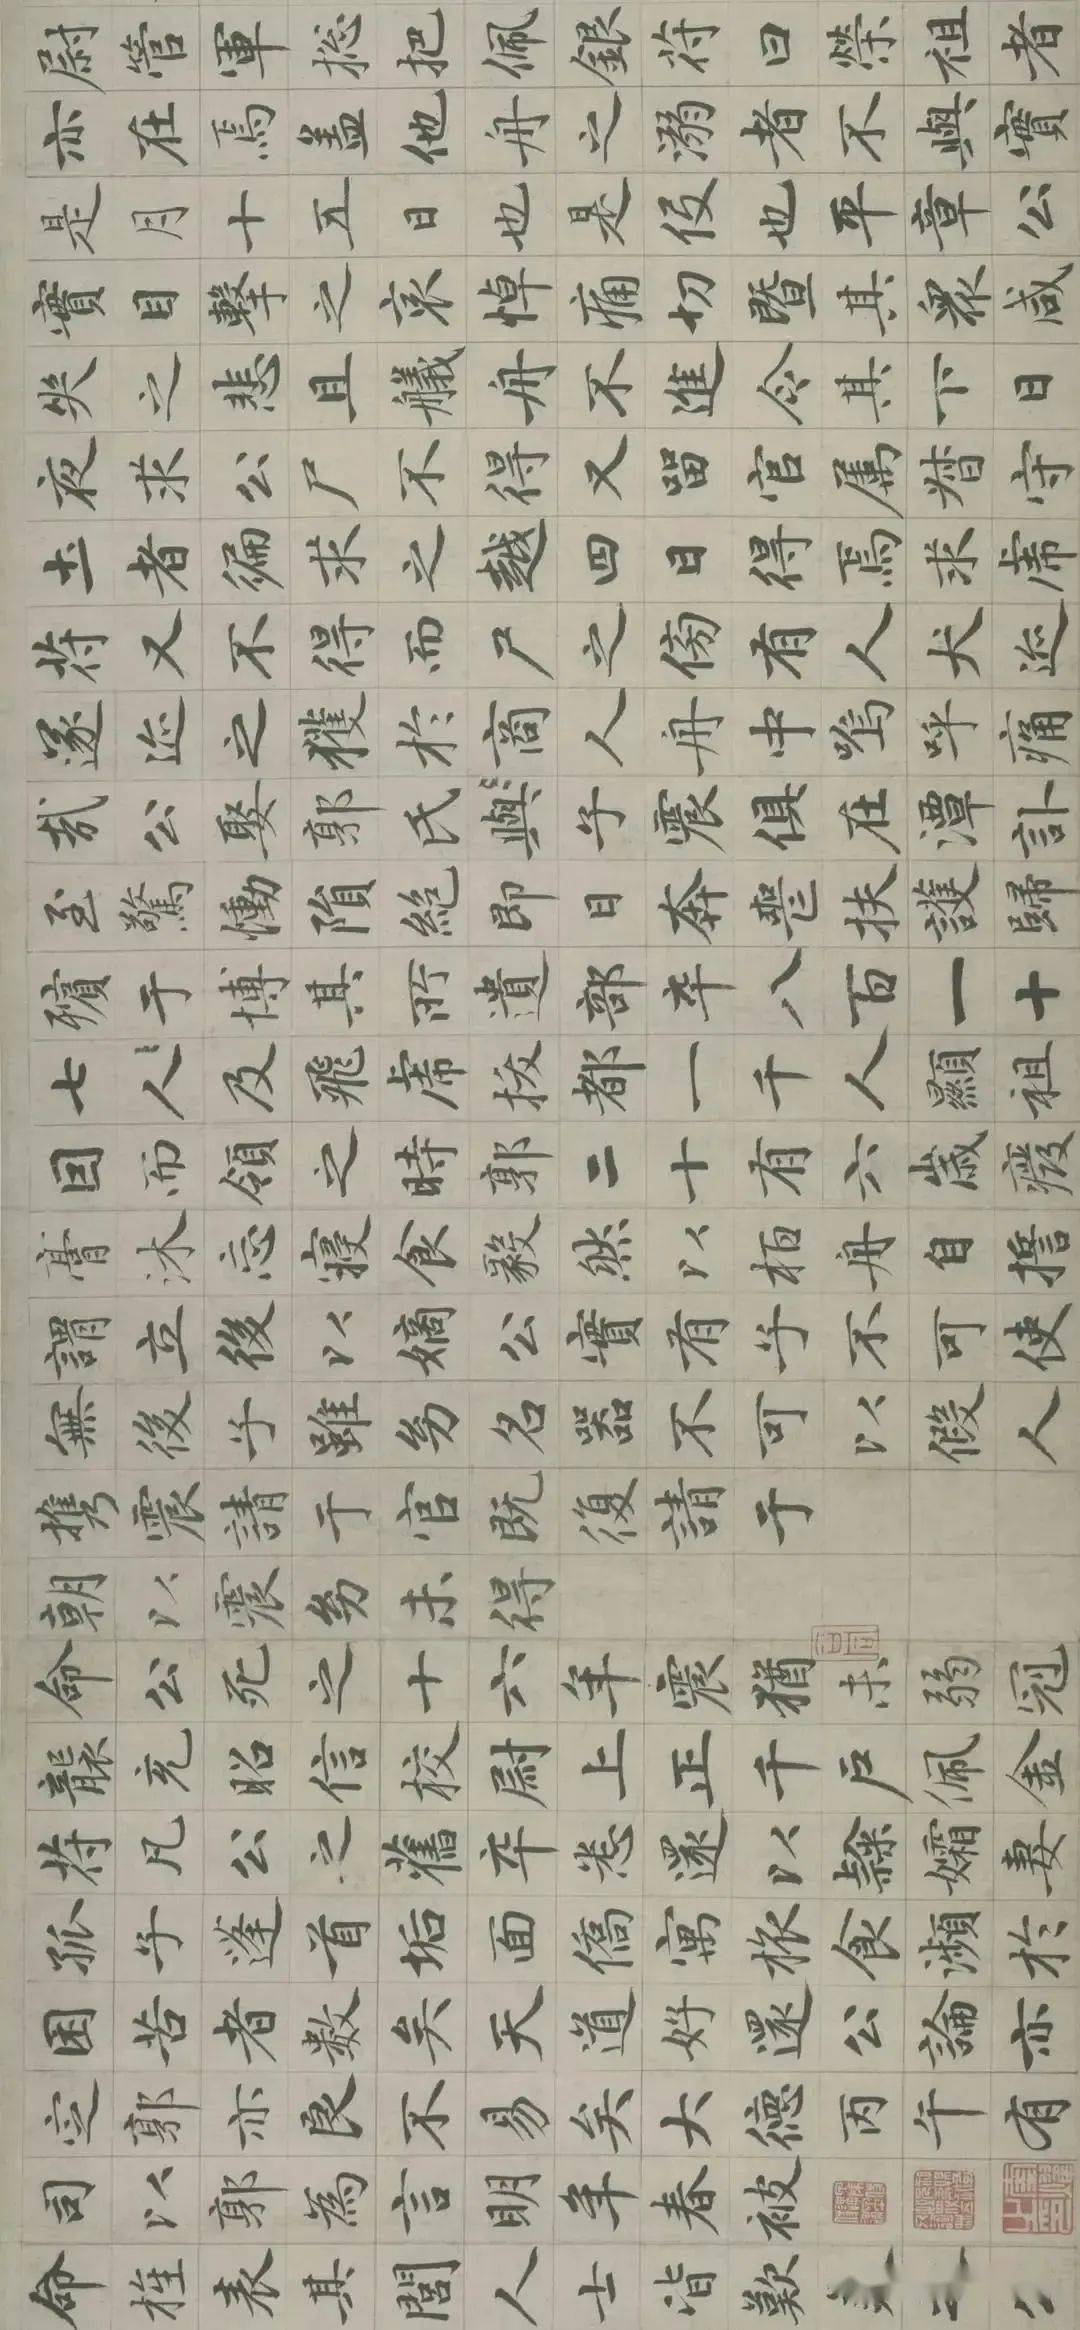 尉管軍総把佩銀符曰榮祖者
亦在焉盖他舟之溺者不與實
是月十五日也是役也平章公
實目擊之哀悼痛切暨其衆咸
失之悲且艤舟不進令其下日
夜求公尸不得又留官属督守
土者徧求之越四日得焉求虎
符又不得而尸之傍有人犬迹
遂迹之獲於商人舟中嗚呼痛
哉公娶郭氏與子震俱在潭訃
至驚慟隕絶即日奔喪扶護歸
殯于博其所遺部卒八百一十
七人及飛虎拔都一千人顯祖
回而領之時郭二十有六歲癈
膏沐忘寢食毅然以柏舟自誓
謂立後以嫡公實有子不可使
無後子雖幼名器不可以假人
携震請于官既復請于
朝以震幼未得
命公死之十六年震猶未弱冠
襲充昭信校尉上正千户佩金
符凡公之舊卒悉還以隸孀妻
孤子蓬首垢面僑寓旅食瀕於
困苦者數矣天道好還公論亦
定郭亦良不易矣大德丙午有
司以郭為言明年春被
命旌表其閭人士皆歎